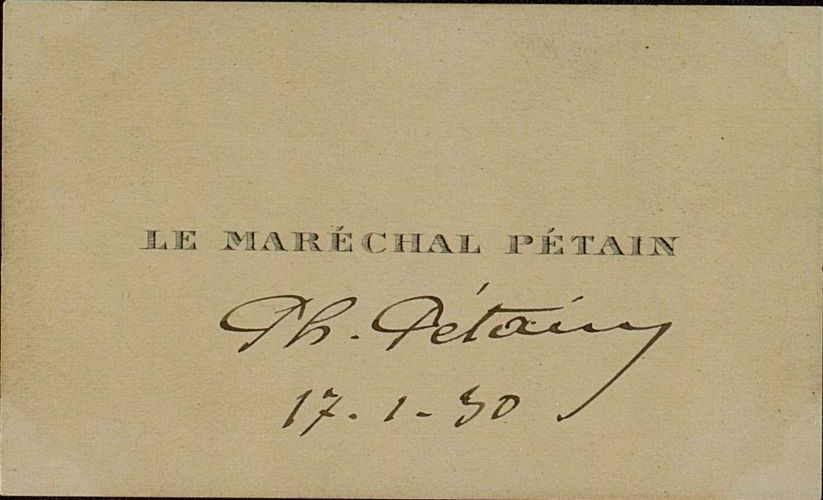 LE MARÉCHAL PÉTAIN
Ph. Pétain
17-1-30